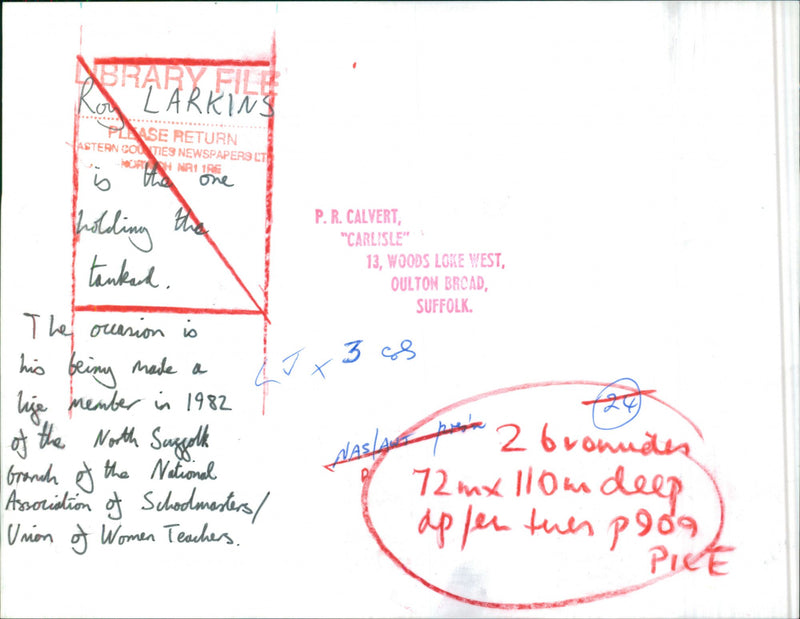 LIBRARY FILE
Roy LARKINS
PLEASE RETURN
ASTERN COUNTIES NEWSPAPERS LT
NORWICH NR1 1RE
is the one
holding the
tankard.
P. R. CALVERT,
"CARLISLE"
13, WOODS LOKE WEST,
OULTON BROAD,
SUFFOLK.
The occasion is
his being made a
life member in 1982
of the North Suffolk
branch of the National
Association of Schoolmasters/
Union of Women Teachers.
LJ x 3 cols
24
2 bromides
72m x 110m deep
p909